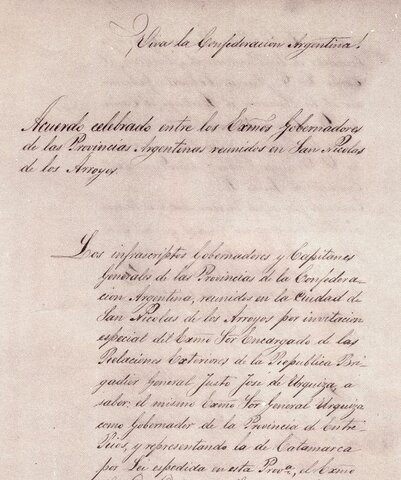 Viva la Confederacion Argentina!
Acuerdo celebrado entre los Exmos Gobernadores
de las Provincias Argentinas reunidos en San Nicolas
de los Arroyos.
Los infrascriptos Gobernadores y Capitanes
Generales de las Provincias de la Confedera-
cion Argentina, reunidos en la Ciudad de
San Nicolas de los Arroyos por invitacion
especial del Exmo Sor Encargado de las
Relaciones Exteriores de la Republica Bri-
gadier General Justo Jose de Urquiza, a
saber: el mismo Exmo Sor General Urquiza
como Gobernador de la Provincia de Entre
Rios, y representando la de Catamarca
por Lei espedida en esta Prova, el Exmo